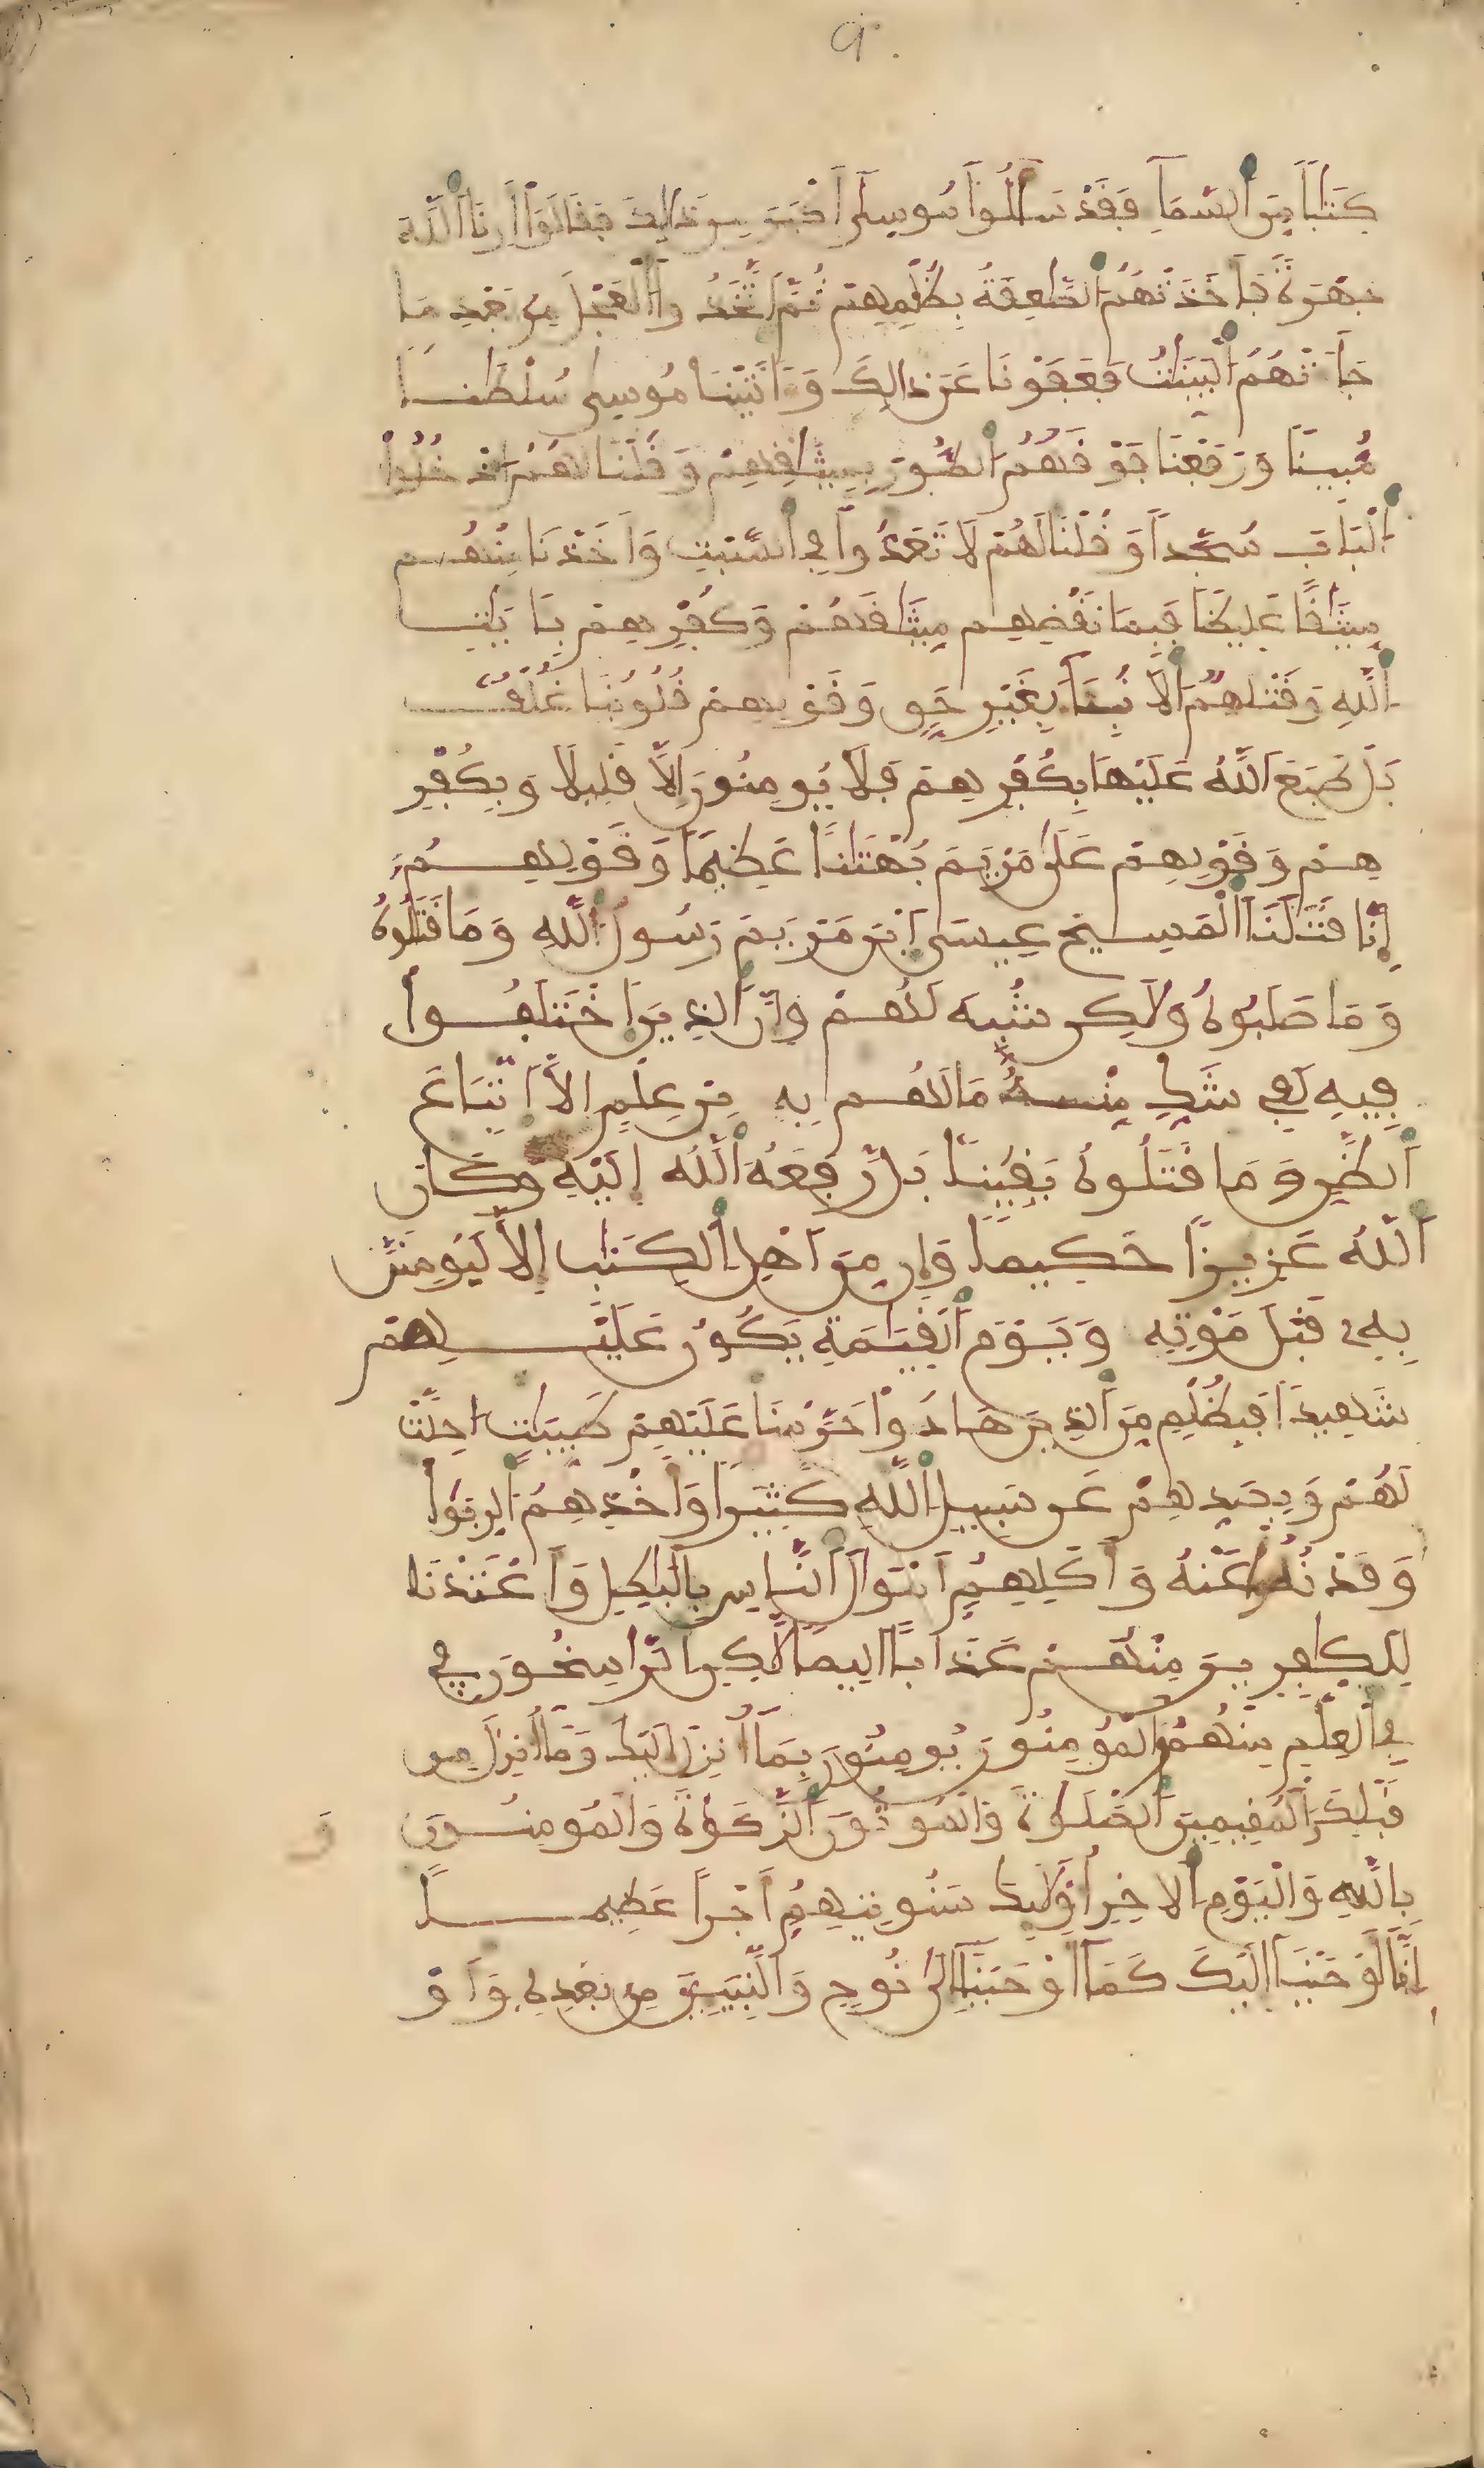 9
كِتَٰباً مِّنَ ٱلسَّمَآءِ فَقَدْ سَأَلُواْ مُوسِىٰٓ أَكْبَرَ مِن ذَٰلِكَ فَقَالُوٓاْ أَرِنَا ٱللَّهَ
جَهْرَةً فَأَخَذَتْهُمُ ٱلصَّٰعِقَةُ بِظُلْمِهِمْ ثُمَّ ٱتَّخَذُواْ ٱلْعِجْلَ مِنۢ بَعْدِ مَا
جَآءَتْهُمُ ٱلْبَيِّنَٰتُ فَعَفَوْنَا عَن ذَٰلِكَ وَءَاتَيْنَا مُوسِىٰ سُلْطَٰناً
مُّبِيناً وَرَفَعْنَا فَوْقَهُمُ ٱلطُّورَ بِمِيثَٰقِهِمْ وَقُلْنَا لَهُمُ ٱدْخُلُواْ
ٱلْبَابَ سُجَّداً وَقُلْنَا لَهُمْ لَا تَعَدُّواْ فِى ٱلسَّبْتِ وَأَخَذْنَا مِنْهُم
مِّيثَٰقاً غَلِيظاً فَبِمَا نَقْضِهِم مِّيثَٰقَهُمْ وَكُفْرِهِم بِـَٔايَٰتِ
ٱللَّهِ وَقَتْلِهِمُ ٱلَانۢبِئَآءَ بِغَيْرِ حَقٍّ وَقَوْلِهِمْ قُلُوبُنَا غُلْفٌ
بَلْ طَبَعَ ٱللَّهُ عَلَيْهَا بِكُفْرِهِمْ فَلَا يُومِنُونَ إِلَّا قَلِيلاً وَبِكُفْرِ
هِمْ وَقَوْلِهِمْ عَلَىٰ مَرْيَمَ بُهْتَٰناً عَظِيماً وَقَوْلِهِمُۥٓ
إِنَّا قَتَلْنَا ٱلْمَسِيحَ عِيسَى ٱبْنَ مَرْيَمَ رَسُولَ ٱللَّهِ وَمَا قَتَلُوهُ
وَمَا صَلَبُوهُ وَلَٰكِن شُبِّهَ لَهُمْ وَإِنَّ ٱلذِينَ ٱخْتَلَفُواْ
فِيهِ لَفِى شَكٍّ مِّنْهُ مَا لَهُم بِهِ مِنْ عِلْمٍ إِلَّا ٱتِّبَاعَ
ٱلظَّنِّ وَمَا قَتَلُوهُ يَقِيناً بَل رَّفَعَهُ ٱللَّهُ إِلَيْهِ وَكَانَ
ٱللَّهُ عَزِيزاً حَكِيماً وَإِن مِّنَ أَهْلِ ٱلْكِتَٰبِ إِلَّا لَيُومِنَنَّ
بِهِۦ قَبْلَ مَوْتِهِ وَيَوْمَ ٱلْقِيَٰمَةِ يَكُونُ عَلَيْهِمْ
شَهِيداً فَبِظُلْمٍ مِّنَ ٱلذِينَ هَادُواْ حَرَّمْنَا عَلَيْهِمْ طَيِّبَٰتٍ احِلَّتْ
لَهُمْ وَبِصَدِّهِمْ عَن سَبِيلِ ٱللَّهِ كَثِيراً وَأَخْذِهِمُ ٱلرِّبَوٰاْ
وَقَدْ نُهُواْ عَنْهُ وَأَكْلِهِمُۥٓ أَمْوَٰلَ ٱلنَّاسِ بِالْبَٰطِلِ وَأَعْتَدْنَا
لِلْكَٰفِرِينَ مِنْهُمْ عَذَاباً الِيماً لَّٰكِنِ ٱلرَّٰسِخُونَ فِى
فِى ٱلْعِلْمِ مِنْهُمْ وَٱلْمُومِنُونَ يُومِنُونَ بِمَآ أُنزِلَ إِلَيْكَ وَمَآ أُنزِلَ مِن
قَبْلِكَ وَٱلْمُقِيمِينَ ٱلصَّلَوٰةَ وَٱلْمُوتُونَ ٱلزَّكَوٰةَ وَٱلْمُومِنُونَ
بِاللَّهِ وَٱلْيَوْمِ ٱلَاخِرِ أُوْلَٰٓئِكَ سَنُوتِيهِمُۥٓ أَجْراً عَظِيماً
إِنَّآ أَوْحَيْنَآ إِلَيْكَ كَمَآ أَوْحَيْنَآ إِلَىٰ نُوحٍ وَٱلنَّبِيِٕٓينَ مِنۢ بَعْدِهِ وَأَوْ